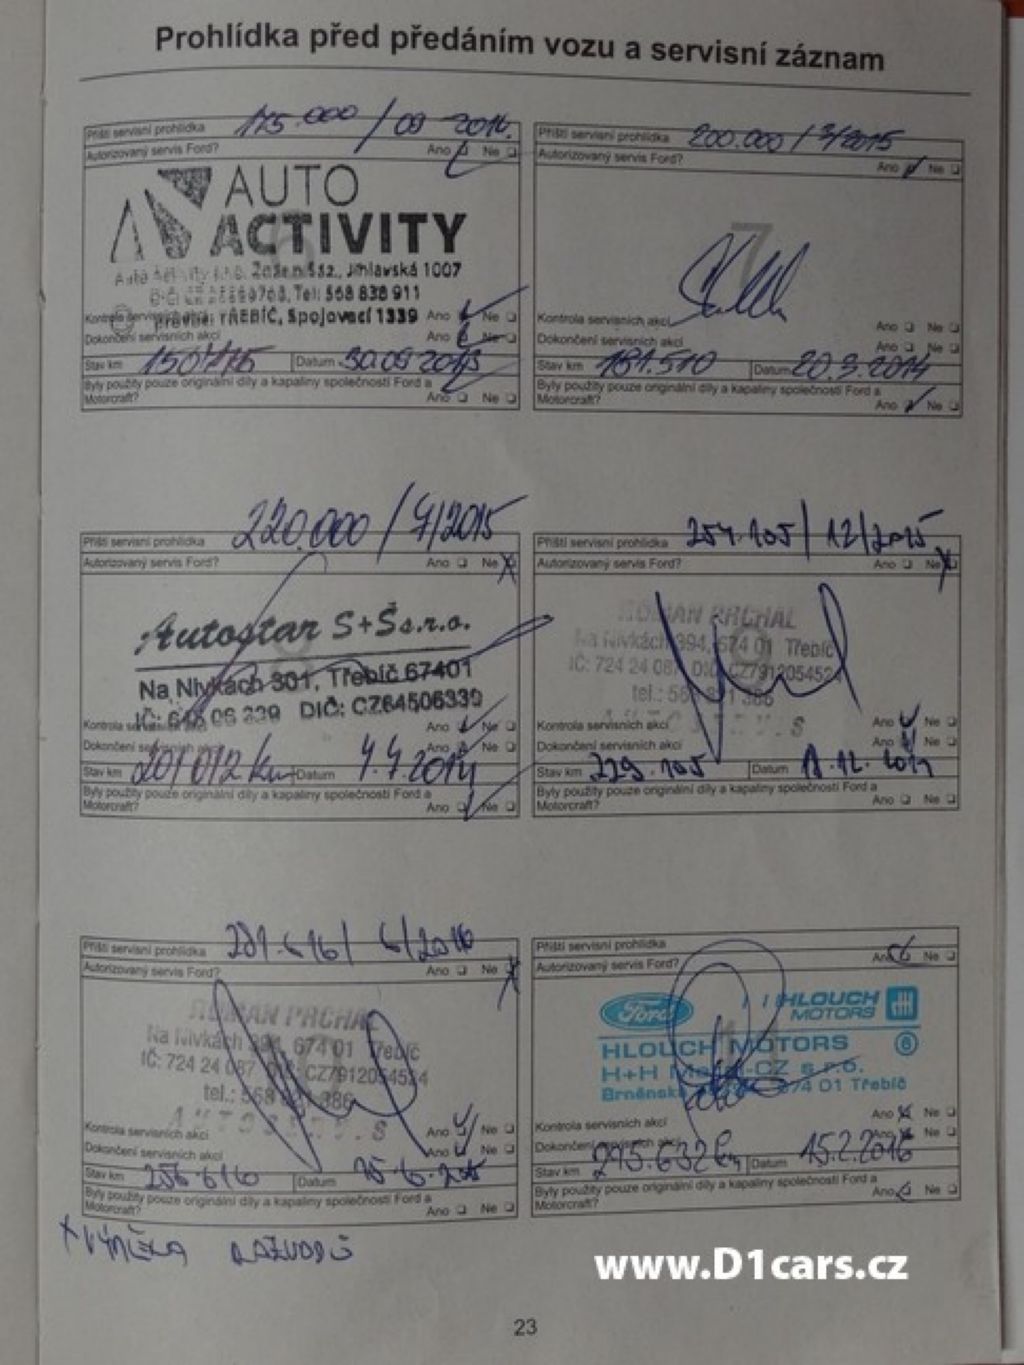 Prohlídka před předáním vozu a servisní záznam
Příští servisní prohlídka 175.000 / 09 2014.
Autorizovaný servis Ford? Ano Ne
AUTO
ACTIVITY
Jihlavská 1007
Tel: 568 838 911
TŘEBÍČ, Spojovací 1339
Kontrola servisních akcí Ano Ne
Dokončení servisních akcí Ano Ne
Stav km Datum 30.09 2013
Byly použity pouze originální díly a kapaliny společnosti Ford a
Motorcraft? Ano Ne
Příští servisní prohlídka 200.000 / 3/2015
Autorizovaný servis Ford? Ano Ne
7
Kontrola servisních akcí Ano Ne
Dokončení servisních akcí Ano Ne
Stav km 181.510 Datum 20.3.2014
Byly použity pouze originální díly a kapaliny společnosti Ford a
Motorcraft? Ano Ne
Příští servisní prohlídka 220.000 / 7/2015
Autorizovaný servis Ford? Ano Ne
8
Autostar S+Š s.r.o.
Na Nivkách 301, Třebíč 67401
DIČ: CZ64506339
Kontrola servisních akcí Ano Ne
Dokončení servisních akcí Ano Ne
Stav km 201012 km Datum 7.7.2014
Byly použity pouze originální díly a kapaliny společnosti Ford a
Motorcraft? Ano Ne
Příští servisní prohlídka 254.105 / 12/2015
Autorizovaný servis Ford? Ano Ne
9
ROMAN PRCHAL
Na Nivkách 394, 674 01 Třebíč
IČ: 724 24 087, DIČ: CZ7912054524
tel.: 568 821 386
AUTOSERVIS
Kontrola servisních akcí Ano Ne
Dokončení servisních akcí Ano Ne
Stav km 229.105 Datum 12.2014
Byly použity pouze originální díly a kapaliny společnosti Ford a
Motorcraft? Ano Ne
Příští servisní prohlídka 281.616 / 6/2016
Autorizovaný servis Ford? Ano Ne
ROMAN PRCHAL
Na Nivkách 394, 674 01 Třebíč
IČ: 724 24 087, DIČ: CZ7912054524
tel.: 568 821 386
AUTOSERVIS
Kontrola servisních akcí Ano Ne
Dokončení servisních akcí Ano Ne
Stav km 256.616 Datum 15.6.2015
Byly použity pouze originální díly a kapaliny společnosti Ford a
Motorcraft? Ano Ne
Příští servisní prohlídka
Autorizovaný servis Ford? Ano Ne
Ford HLOUCH
MOTORS
HLOUCH MOTORS 6
H+H Motor-CZ s r.o.
Brněnská 674 01 Třebíč
Kontrola servisních akcí Ano Ne
Dokončení servisních akcí Ano Ne
Stav km 275.632 km Datum 15.2.2016
Byly použity pouze originální díly a kapaliny společnosti Ford a
Motorcraft? Ano Ne
+ VÝMĚNA ROZVODŮ
www.D1cars.cz
23